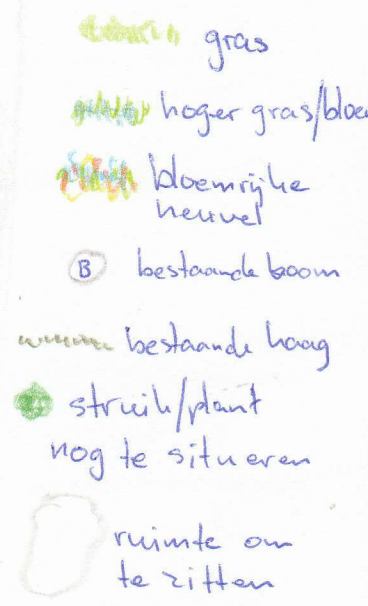 gras
hoger gras/bloe
bloemrijke
heuvel
B bestaande boom
bestaande haag
struik/plant
nog te situeren
ruimte om
te zitten